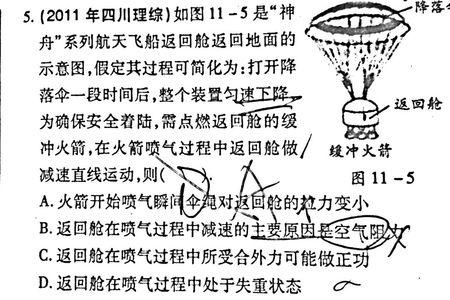 5. (2011年四川理综)如图11-5是“神
舟”系列航天飞船返回舱返回地面的
示意图,假定其过程可简化为:打开降
落伞一段时间后,整个装置匀速下降,
为确保安全着陆,需点燃返回舱的缓
冲火箭,在火箭喷气过程中返回舱做
减速直线运动,则( ).
降落伞
返回舱
缓冲火箭
图11-5
A. 火箭开始喷气瞬间伞绳对返回舱的拉力变小
B. 返回舱在喷气过程中减速的主要原因是空气阻力
C. 返回舱在喷气过程中所受合外力可能做正功
D. 返回舱在喷气过程中处于失重状态
A